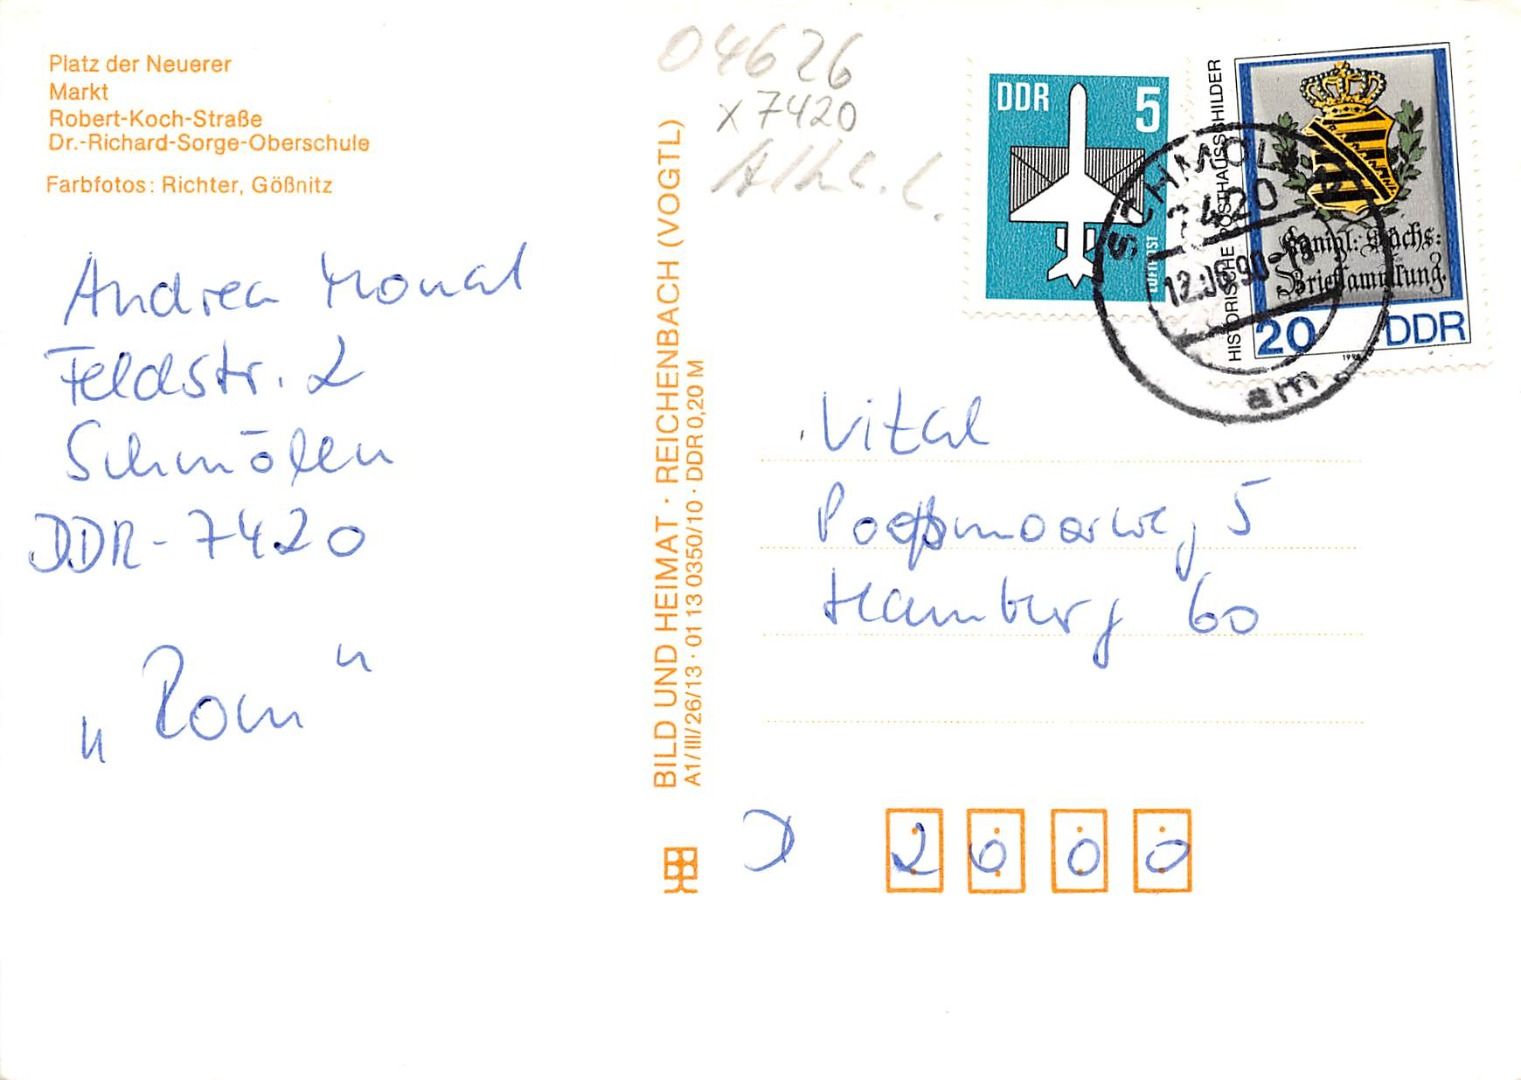 Platz der Neuerer
Markt
Robert-Koch-Straße
Dr.-Richard-Sorge-Oberschule
Farbfotos: Richter, Gößnitz
Andrea
Feldstr. 2
Schmölln
DDR-7420
„Rom"
BILD UND HEIMAT · REICHENBACH (VOGTL)
A1/III/26/13 · 01 13 0350/10 · DDR 0,20 M
04626
x 7420
DDR 5
LUFTPOST
HISTORISCHE POSTHAUSSCHILDER
Königl: Sächs:
Briefsammlung.
20 DDR
1990
SCHMÖLLN
7420
12.06.90-18
am
Vital
5
Hamburg 60
D 2000